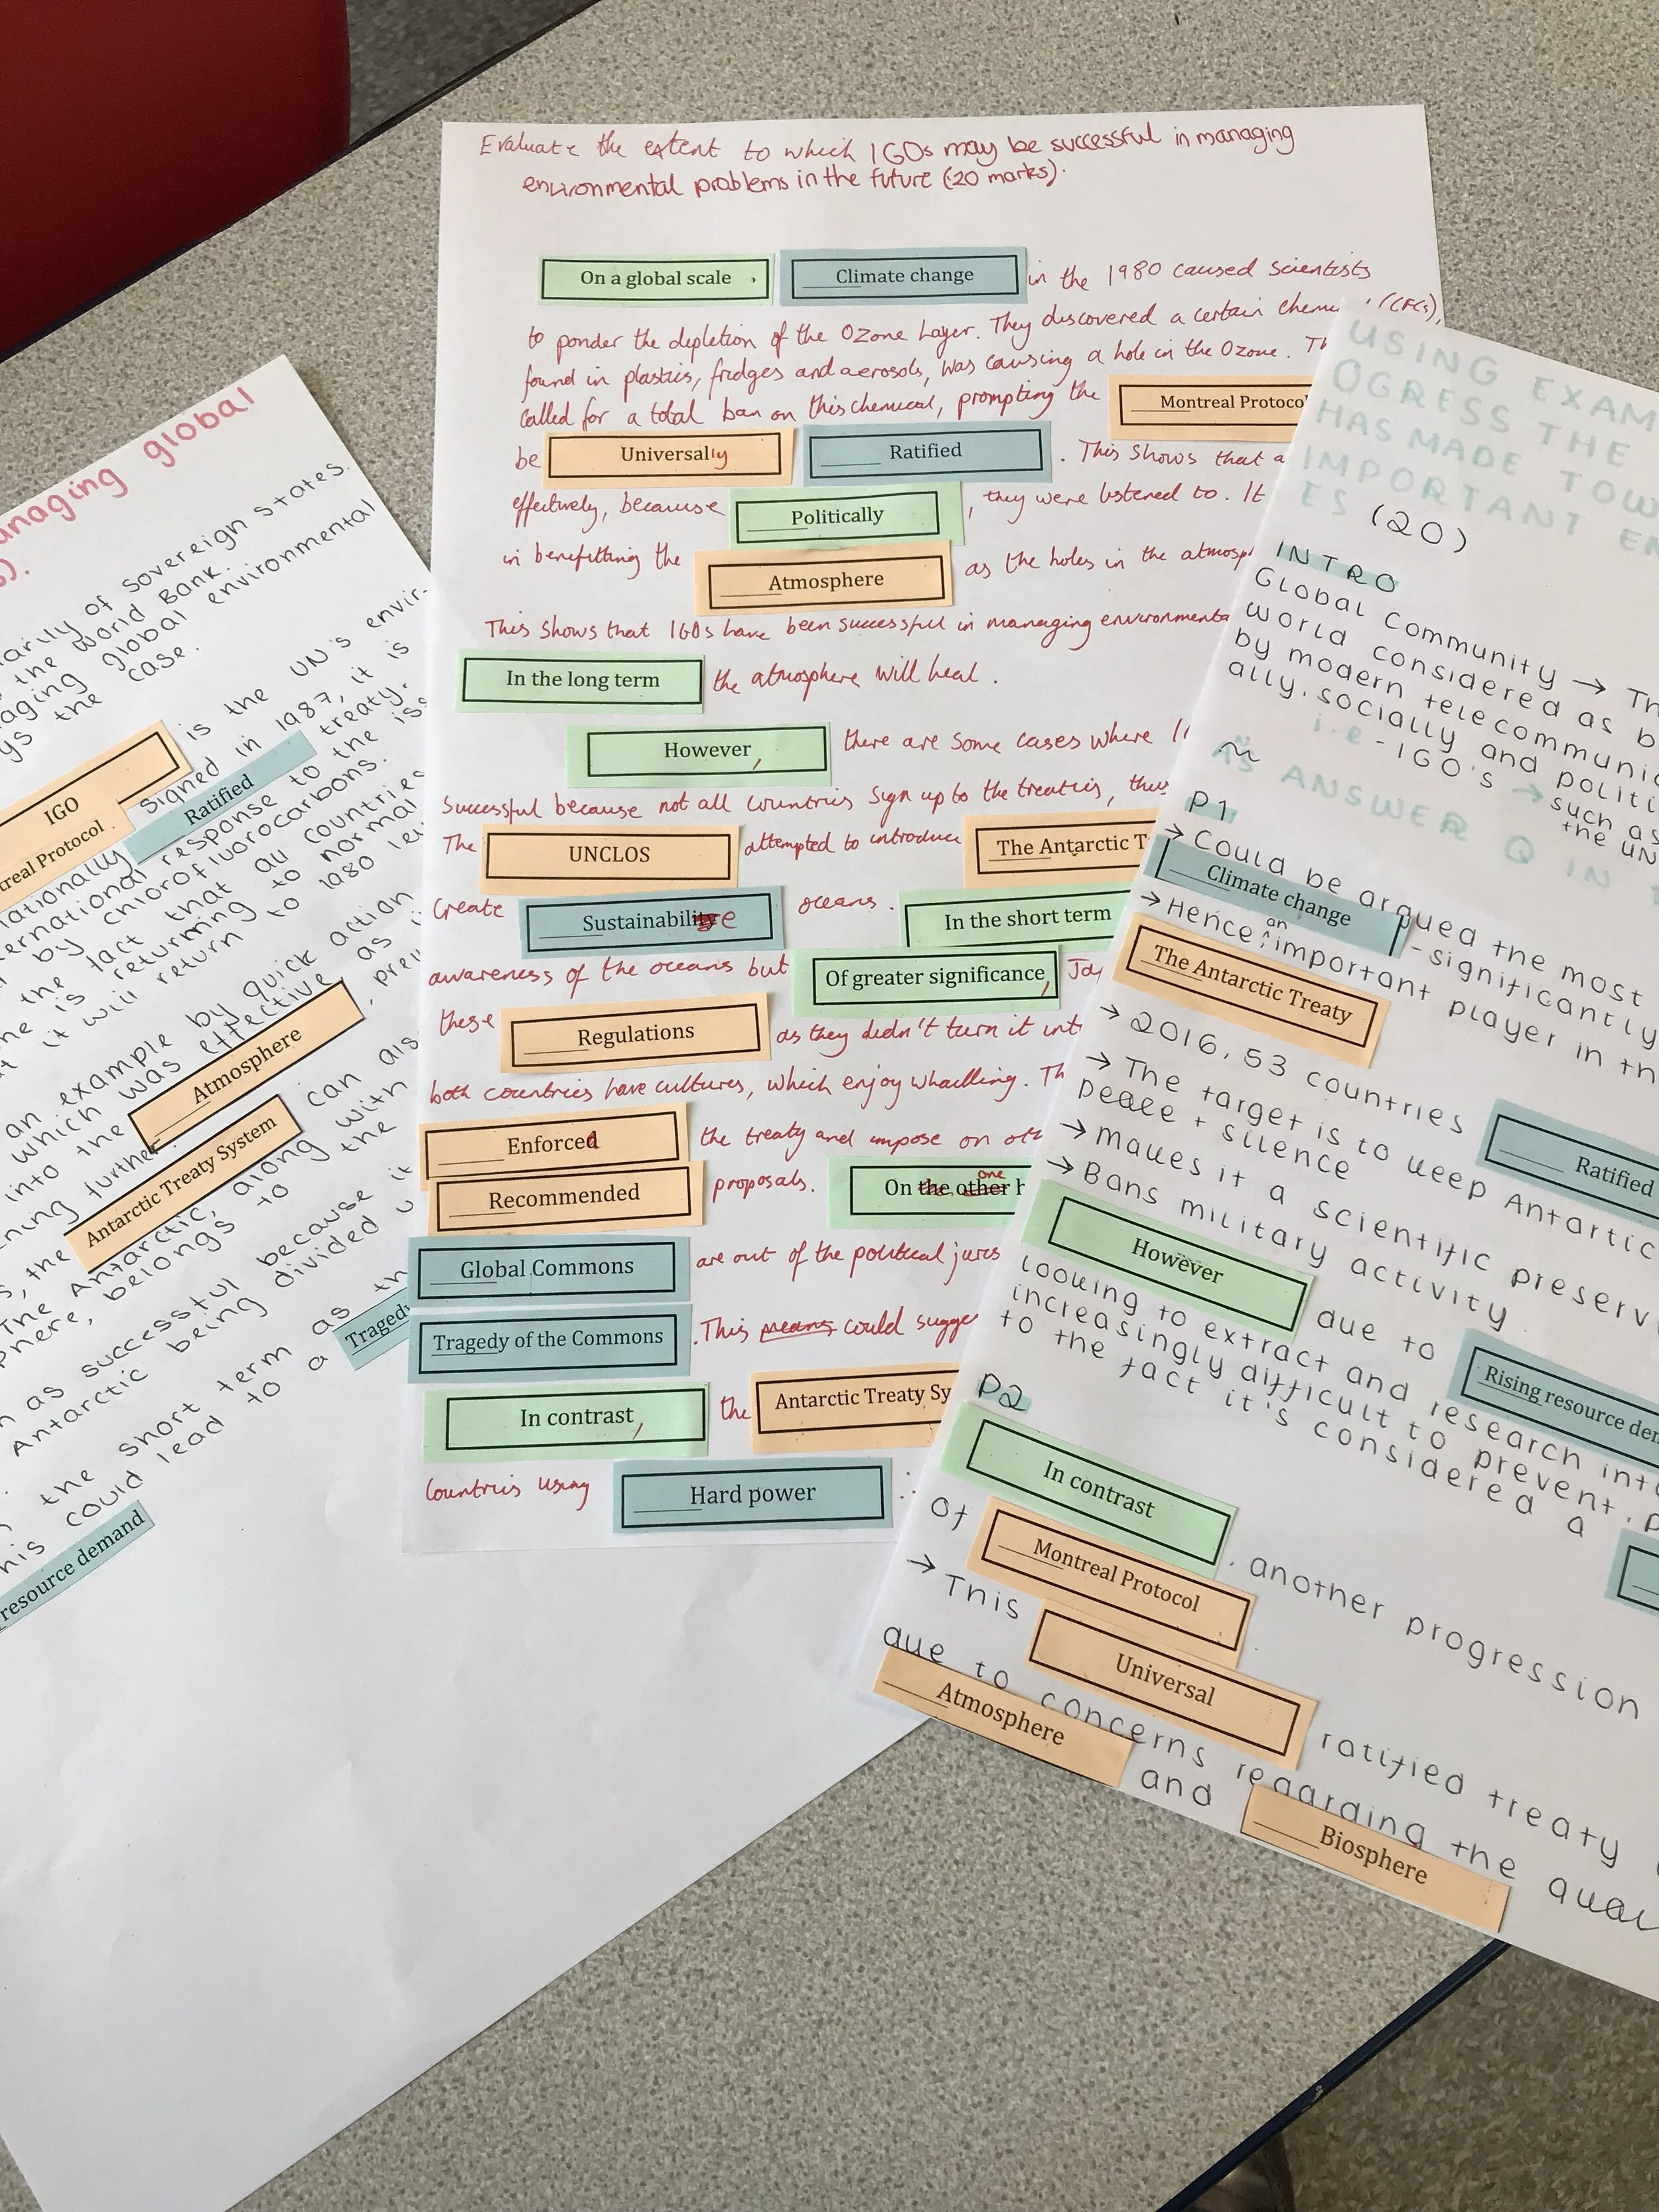 Evaluate the extent to which IGOs may be successful in managing
environmental problems in the future (20 marks).
On a global scale , Climate change in the 1980 caused scientists
to ponder the depletion of the Ozone Layer. They discovered a certain (CFCs),
found in plastics, fridges and aerosols, was causing a hole in the Ozone.
called for a total ban on this chemical, prompting the Montreal Protocol
be Universally Ratified . This shows that a
effectively, because Politically , they were listened to. It
in benefitting the Atmosphere as the holes in the
This shows that IGOs have been successful in managing
In the long term the atmosphere will heal .
However, there are some cases where
successful because not all countries sign up to the treaties,
The UNCLOS attempted to introduce The Antarctic T
Create Sustainable oceans. In the short term
awareness of the oceans but Of greater significance,
these Regulations as they didn't turn it
both countries have cultures, which enjoy whalling.
Enforced the treaty and impose on
Recommended proposals. On the other one
Global Commons are out of the political
Tragedy of the Commons . This means could
In contrast, the Antarctic Treaty Sy
Countries using Hard power
managing global
of sovereign states.
the World Bank.
global environmental
the case.
IGO is the UN's envir-
Montreal Protocol signed in 1987, it is
Ratified treaty.
response to the
by chlorofluorocarbons.
the fact that all countries
is returning to normal
it will return to 1980
an example by quick action
which was effective as
into the Atmosphere
further.
the Antarctic Treaty System can
The Antarctic, along with
belongs to the
as successful because it
Antarctic being divided
the short term as
This could lead to a
resource demand
USING EXAM
OGRESS THE
HAS MADE TOW
IMPORTANT EN
ES (20)
INTRO
Global Community → Th
world considered as b
by modern telecommunic
ally, socially and politi
i.e - IGO's → such as
the UN
AS ANSWER Q IN
P1
→ Could be argued the most
Climate change - significantly
→ Hence an important player in th
The Antarctic Treaty
→ 2016, 53 countries Ratified
→ The target is to keep Antartic
peace + silence
→ makes it a scientific preserv
→ Bans military activity
However due to Rising resource
looking to extract and research int
increasingly difficult to prevent.
to the fact it's considered a
P2
In contrast , another progression
Of Montreal Protocol
→ This Universal ratified treaty
due to concerns regarding the
Atmosphere and Biosphere